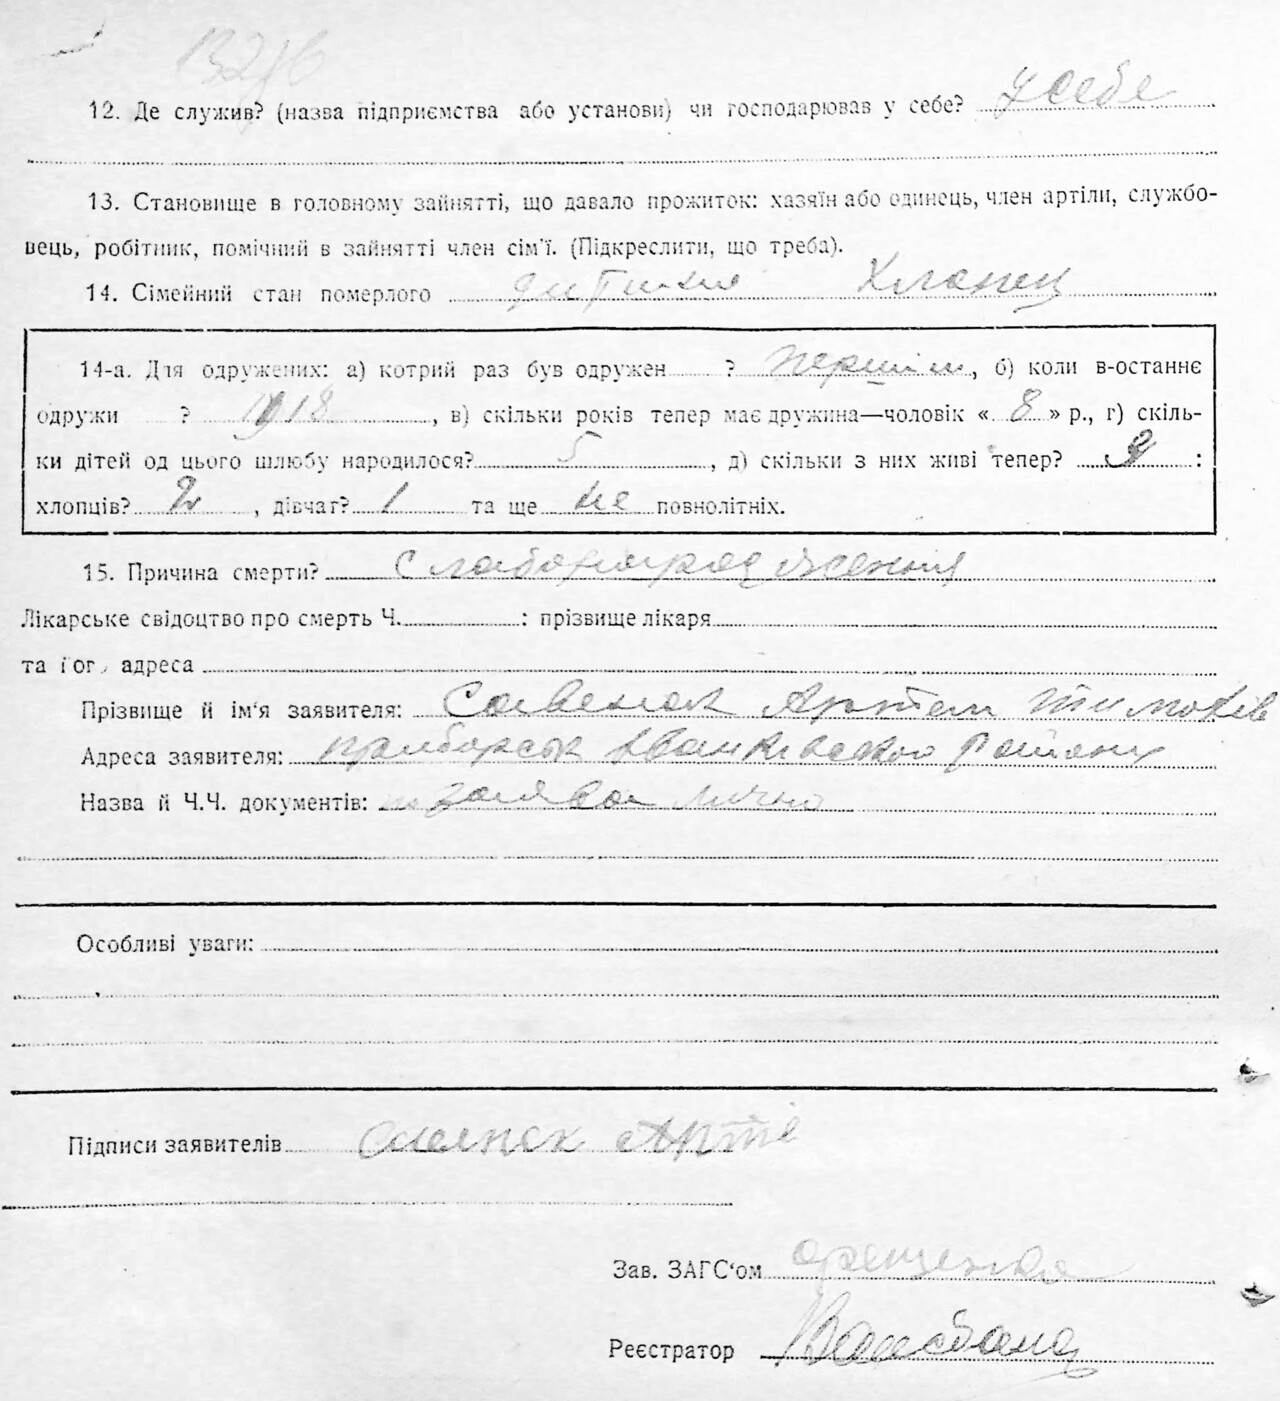 12. Де служив? (назва підприємства або установи) чи господарював у себе? у себе
13. Становище в головному зайнятті, що давало прожиток: хазяїн або одинець, член артіли, службо-
вець, робітник, помічний в зайнятті член сім'ї. (Підкреслити, що треба).
14. Сімейний стан померлого дитина Хлопец
14-а. Для одружених: а) котрий раз був одружен ? першім, б) коли в-останнє
одружи ? 1918, в) скільки років тепер має дружина—чоловік « 8 » р., г) скіль-
ки дітей од цього шлюбу народилося? 5, д) скільки з них живі тепер? 3 :
хлопців? 2, дівчат? 1 та ще не повнолітніх.
15. Причина смерти?
Лікарське свідоцтво про смерть Ч. : прізвище лікаря
та його адреса
Прізвище й ім'я заявителя: Савенок Артем
Адреса заявителя: Приборськ Іванківського району
Назва й Ч.Ч. документів: заява лично
Особливі уваги:
Підписи заявителів
Зав. ЗАГС'ом
Реєстратор